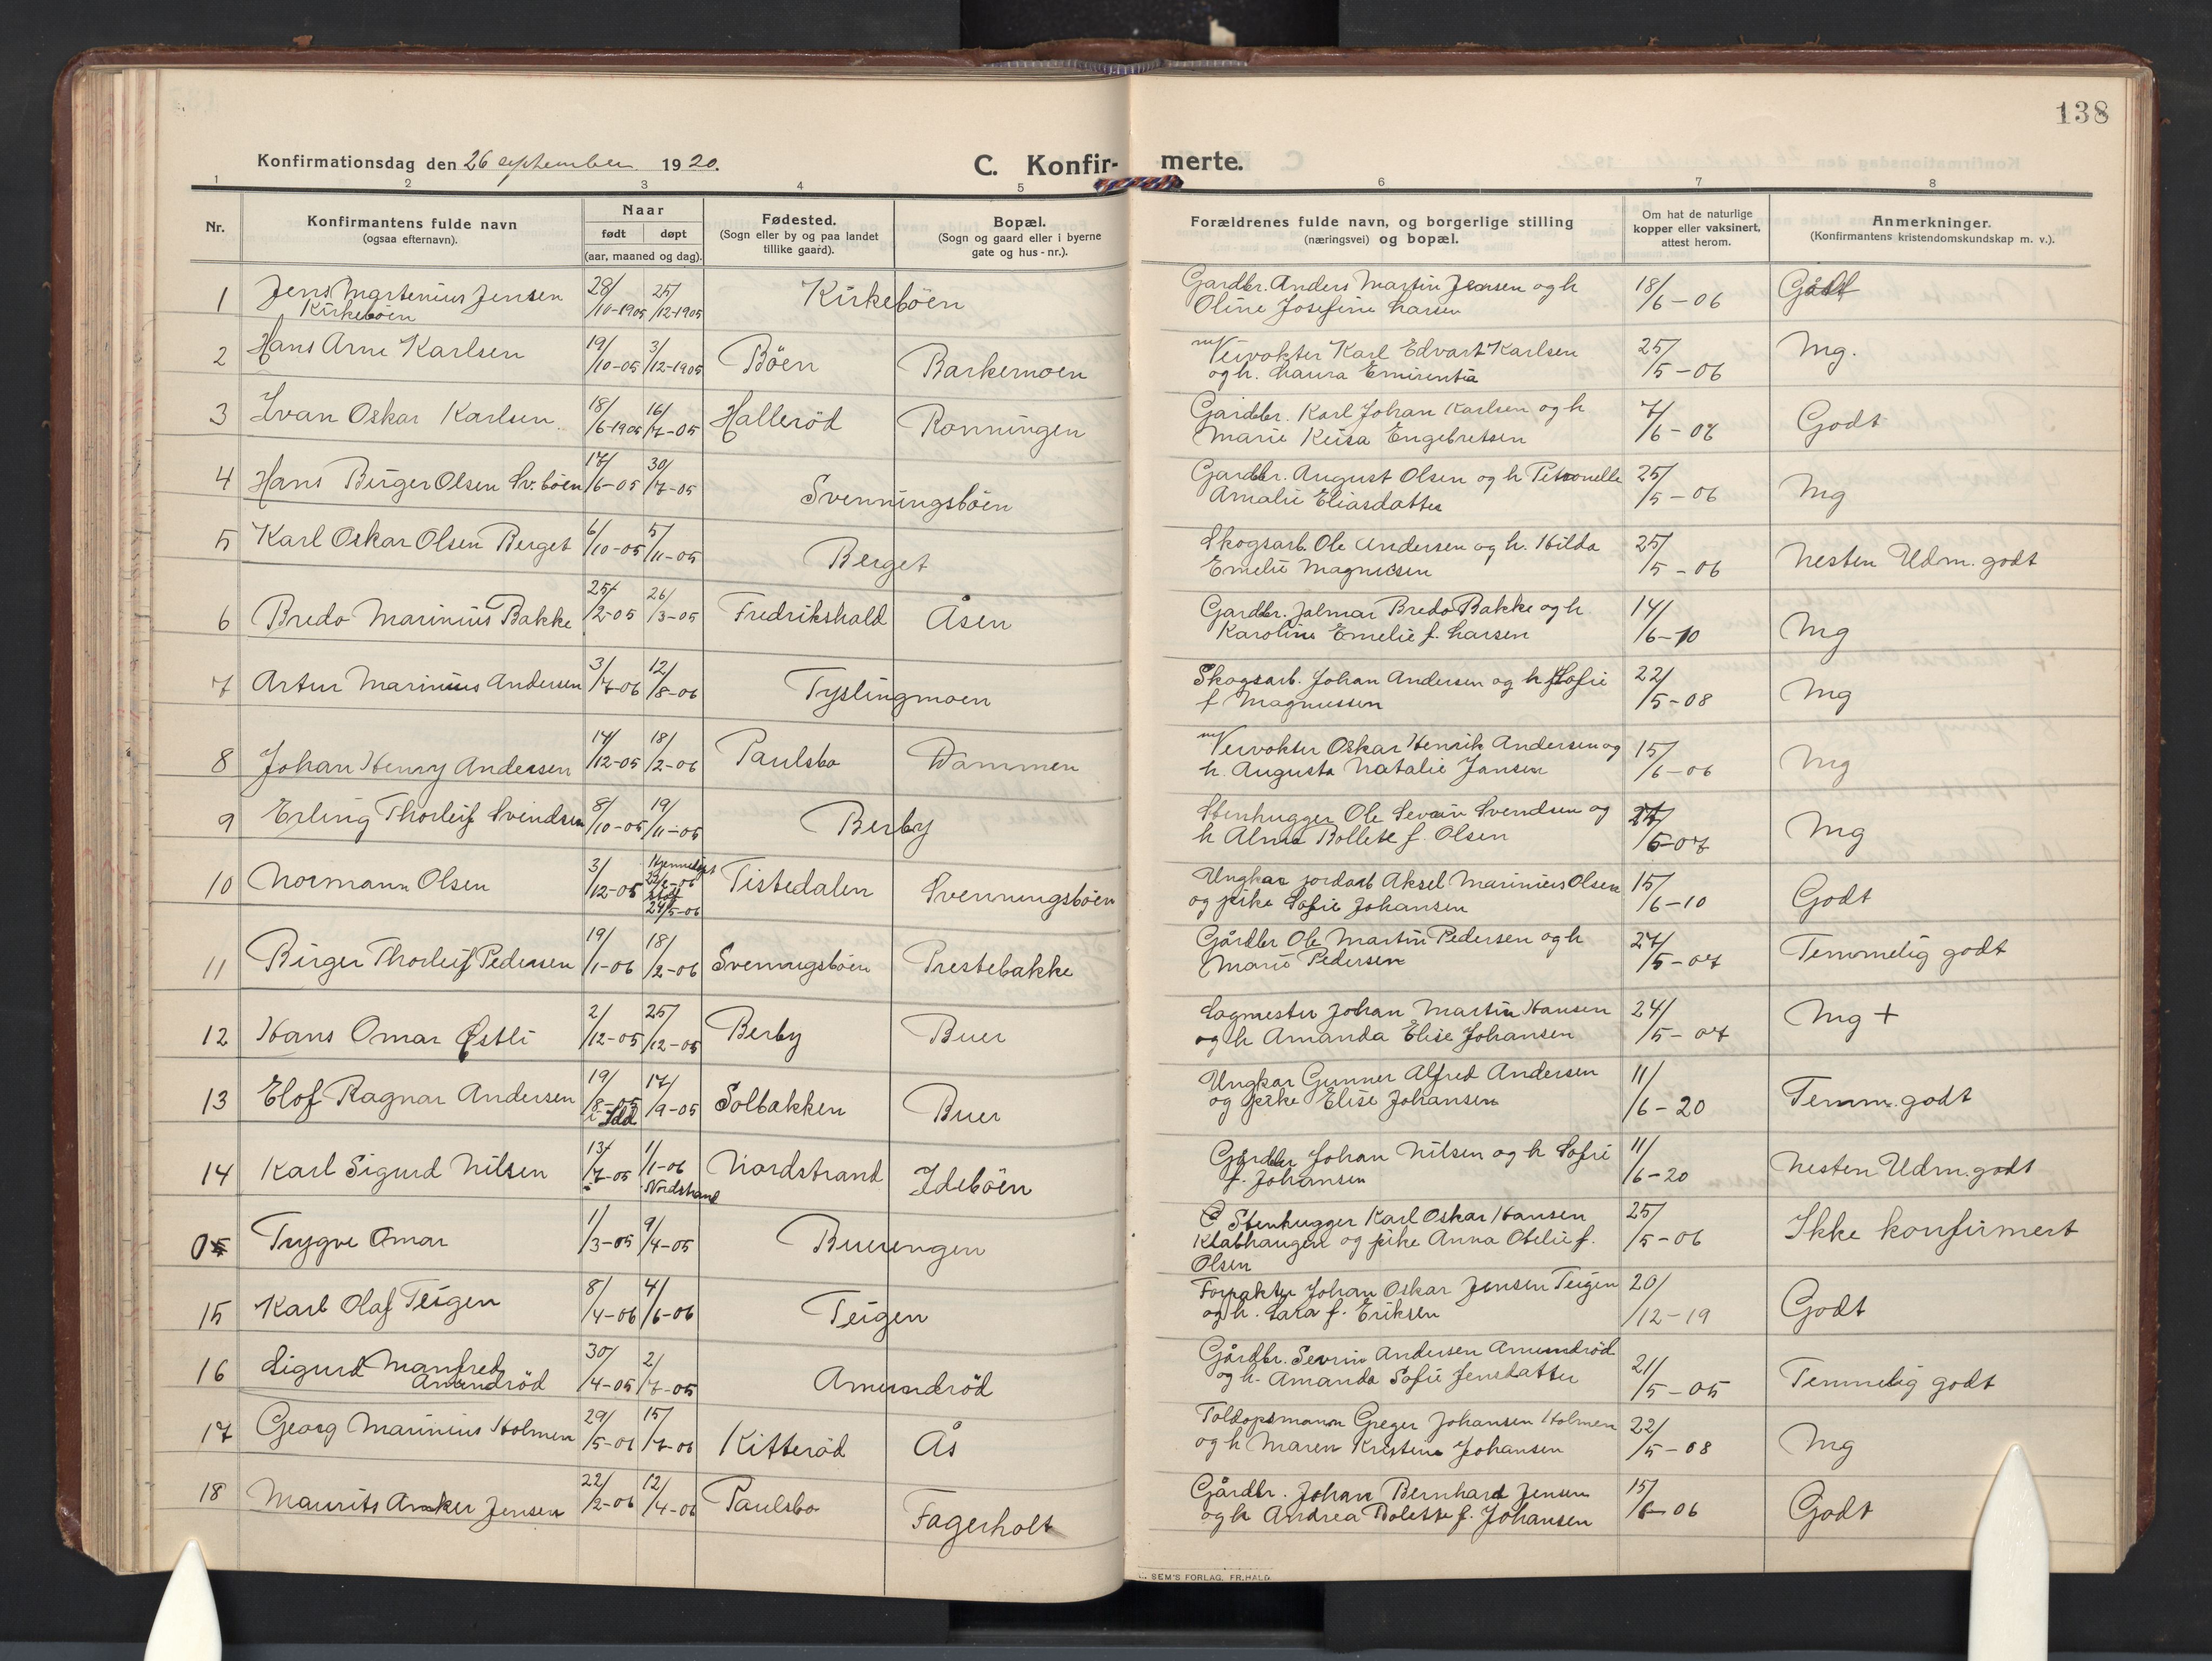 138
Konfirmationsdag den 26 september 1920.
C. Konfir- merte.
1 2 3 4 5 6 7 8
Nr.
Konfirmantens fulde navn
(ogsaa efternavn).
Naar
født døpt
(aar, maaned og dag).
Fødested.
(Sogn eller by og paa landet
tillike gaard).
Bopæl.
(Sogn og gaard eller i byerne
gate og hus-nr.).
Forældrenes fulde navn, og borgerlige stilling
(næringsvei) og bopæl.
Om hat de naturlige
kopper eller vaksinert,
attest herom.
Anmerkninger.
(Konfirmantens kristendomskundskap m. v.).
1 Jens Martenius Jensen 28/10-1905 25/12-1905 Kirkebøen Gardbr. Anders Martin Jensen og h 18/6-06 Godt
Kirkebøen Oline Josefine Larsen
2 Hans Arne Karlsen 19/10-05 3/12-1905 Böen Barkemoen Veivokter Karl Edvart Karlsen 25/5-06 Mg.
og h. Laura Emirentia
3 Ivan Oskar Karlsen 18/6-1905 16/7-05 Halleröd Rønningen Gardbr. Karl Johan Karlsen og h 7/6-07 Godt
Marie Keisa Engebretsen
4 Hans Birger Olsen Sv. böen 17/6-05 30/7-05 Svenningsböen Gardbr. August Olsen og h Petronelle 25/5-06 Mg
Amalie Eliasdatter
5 Karl Oskar Olsen Berget 6/10-05 5/11-05 Berget Skogsarb. Ole Andersen og h. Hilda 25/5-06 Nesten Udm. godt
Emelie Magnussen
6 Bredo Marinius Bakke 25/2-05 26/3-05 Fredrikshald Åsen Gardbr. Jalmar Bredo Bakke og h 14/6-10 Mg
Karoline Emelie f. Larsen
7 Artur Marinius Andersen 3/7-06 12/8-06 Tyslingmoen Skogsarb. Johan Andersen og h Sofie 22/5-08 Mg
f Magnussen
8 Johan Henry Andersen 14/12-05 18/2-06 Paulsbo Dammen Veivokter Oskar Henrik Andersen og 15/6-06 Mg
h. Augusta Natalie Jansen
9 Erling Thorleif Svendsen 8/10-05 19/11-05 Berby Stenhugger Ole Severin Svendsen og 5-07 Mg
h Alma Bollete f. Olsen
10 Normann Olsen 3/12-05 Hjemmedöpt
24/5-06 Tistedalen Svenningsböen Ungkar jordarb Aksel Marinius Olsen 15/6-10 Godt
og pike Sofie Johansen
11 Birger Thorleif Pedersen 19/1-06 18/2-06 Svenningsböen Prestebakke Gårdbr Ole Martin Pedersen og h 27/5-07 Temmelig godt
Marie Pedersen
12 Hans Omar Østli 2/12-05 25/12-05 Berby Buer Sagmester Johan Martin Hansen 24/5-07 Mg +
og h Amanda Elise Johansen
13 Elof Ragnar Andersen 19/8-05 17/9-05 Solbakken Buer Ungkar Gunner Alfred Andersen 11/6-20 Temm. godt
i Idd og pike Elise Johansen
14 Karl Sigurd Nilsen 13/7-05 1/1-06 Nordstrand Ideböen Gårdbr Johan Nilsen og h Sofie 11/6-20 Nesten Udm. godt
Nordstrand f. Johansen
0 Trygve Omar 1/3-05 9/4-05 Buerengen Stenhugger Karl Oskar Hansen 25/5-06 Ikke konfirmert
Klabhaugen og pike Anna Otelie f.
Olsen
15 Karl Olaf Teigen 8/4-06 4/6-06 Teigen Forpakter Johan Oskar Jensen Teigen 20/12-19 Godt
og h. Lara f. Eriksen
16 Sigurd Manfred 30/4-05 2/7-05 Amundröd Gårdbr. Sevrin Andersen Amundröd 21/5-05 Temmelig godt
Amundröd og h. Amanda Sofie Jensdatter
17 Georg Marinius Holmen 29/5-06 15/7-06 Kitteröd Ås Toldopsmann Greger Johansen Holmen 22/5-08 Mg
og h Maren Kristine Johansen
18 Maurits Anker Jensen 22/2-06 12/4-06 Paulsbo Fagerholt Gårdbr. Johan Bernhard Jensen 15/6-06 Godt
og h Andrea Bolette f. Johansen
SEM'S FORLAG, FR.HALD.